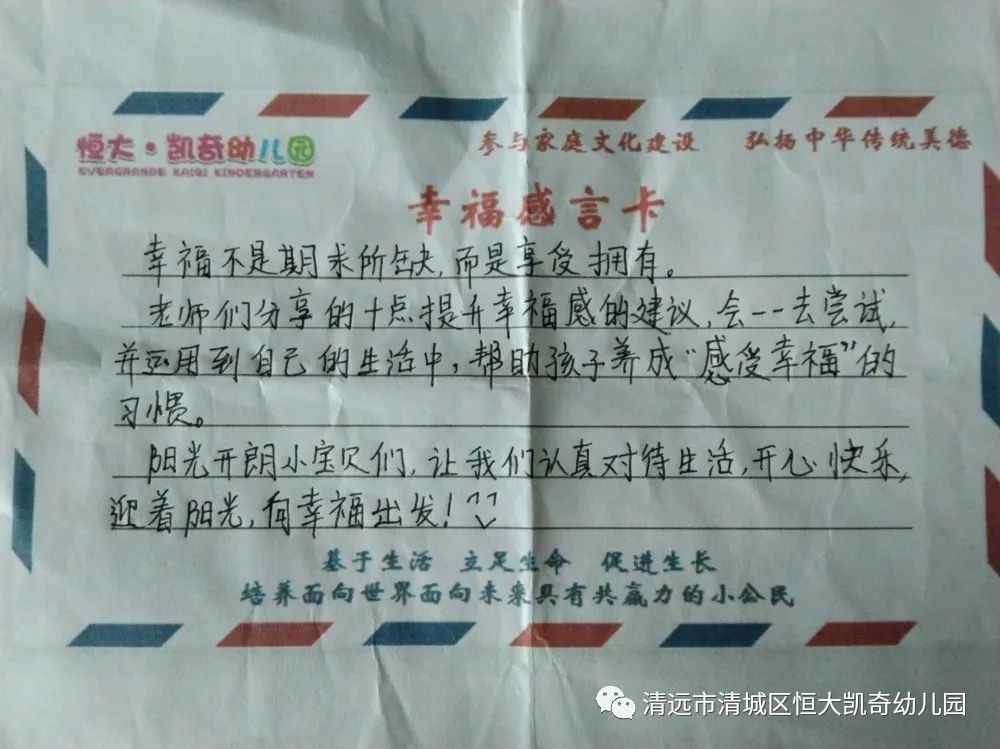 恒大·凯奇幼儿园
EVERGRANDE KAIQI KINDERGARTEN
参与家庭文化建设 弘扬中华传统美德
幸福感言卡
幸福不是期求所缺,而是享受拥有。
老师们分享的十点提升幸福感的建议,会一一去尝试,
并运用到自己的生活中,帮助孩子养成“感受幸福”的
习惯。
阳光开朗小宝贝们,让我们认真对待生活,开心快乐,
迎着阳光,向幸福出发!
基于生活 立足生命 促进生长
培养面向世界面向未来具有共赢力的小公民
清远市清城区恒大凯奇幼儿园